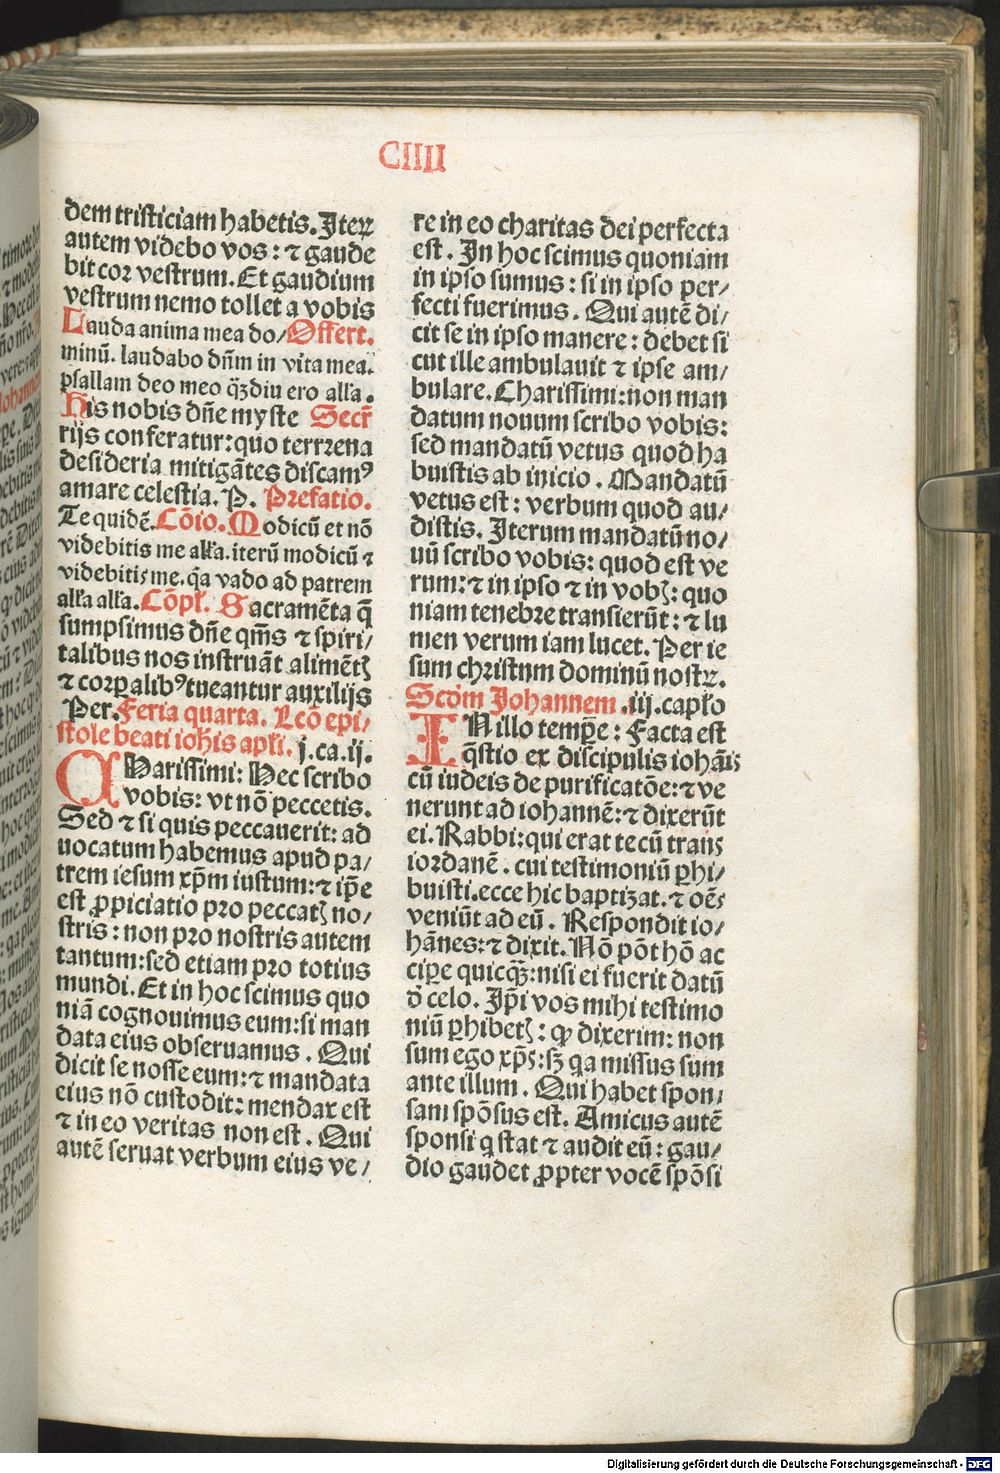 CIIII
dem tristiciam habetis. Iterꝝ
autem videbo vos: ⁊ gaude
bit cor vestrum. Et gaudium
vestrum nemo tollet a vobis
Lauda anima mea do/ Offert.
minū. laudabo dn̄m in vita mea.
psallam deo meo qͣ̄diu ero all'a.
His nobis dn̄e myste Secr̄
rijs conferatur: quo terrena
desideria mitigātes discamꝰ
amare celestia. P. Prefatio.
Te quidē. Cōio. Modicū et nō
videbitis me all'a. iterū modicū ⁊
videbitis me. q̄a vado ad patrem
all'a all'a. Cōpl'. Sacramēta q̄
sumpsimus dn̄e qm̄s ⁊ spiri/
talibus nos instruāt alimētꝭ
⁊ corꝑalibꝰ tueantur auxilijs
Per. Feria quarta. Lcō epi/
stole beati ioh̄is apl'i. j. ca. ij.
CHarissimi: Hec scribo
vobis: vt nō peccetis.
Sed ⁊ si quis peccauerit: ad
uocatum habemus apud pa/
trem iesum xp̄m iustum: ⁊ ip̄e
est ꝓpiciatio pro peccatꝭ no/
stris: non pro nostris autem
tantum: sed etiam pro totius
mundi. Et in hoc scimus quo
niā cognouimus eum: si man
data eius obseruamus. Qui
dicit se nosse eum: ⁊ mandata
eius nō custodit: mendax est
⁊ in eo veritas non est. Qui
autē seruat verbum eius ve/
re in eo charitas dei perfecta
est. In hoc scimus quoniam
in ipso sumus: si in ipso per/
fecti fuerimus. Qui autē di/
cit se in ipso manere: debet si
cut ille ambulauit ⁊ ipse am/
bulare. Charissimi: non man
datum nouum scribo vobis:
sed mandatū vetus quod ha
buistis ab inicio. Mandatū
vetus est: verbum quod au/
distis. Iterum mandatū no/
uū scribo vobis: quod est ve
rum: ⁊ in ipso ⁊ in vobꝭ: quo
niam tenebre transierūt: ⁊ lu
men verum iam lucet. Per ie
sum christum dominū nostꝝ.
Scd̄m Johannem. iij. capl'o
IN illo tempe: Facta est
q̄stio ex discipulis iohānis
cū iudeis de purificatōe: ⁊ ve
nerunt ad iohannē: ⁊ dixerūt
ei. Rabbi: qui erat tecū trans
iordanē. cui testimoniū ꝑhi/
buisti. ecce hic baptizat. ⁊ oēs
veniūt ad eū. Respondit io/
hānes: ⁊ dixit. Nō pōt hō ac
cipe quicqͣ̄: nisi ei fuerit datū
d̄ celo. Ip̄i vos mihi testimo
niū ꝑhibetꝭ: ꝙ dixerim: non
sum ego xp̄s: sꝫ q̄a missus sum
ante illum. Qui habet spon/
sam spōsus est. Amicus autē
sponsi q̄ stat ⁊ audit eū: gau/
dio gaudet ꝓpter vocē spōsi
Digitalisierung gefördert durch die Deutsche Forschungsgemeinschaft - DFG